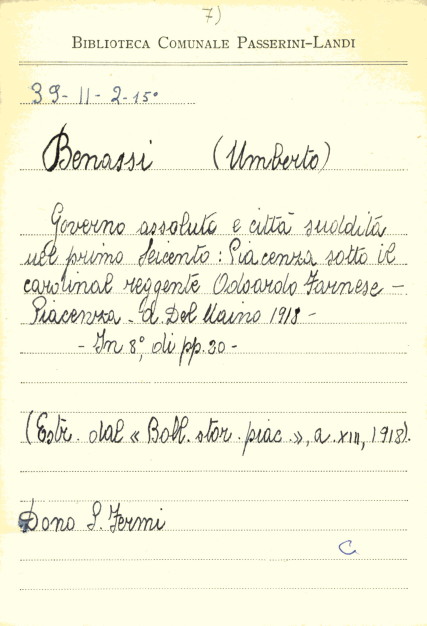 7)
BIBLIOTECA COMUNALE PASSERINI-LANDI
39-11-2-15°
Benassi (Umberto)
Governo assoluto e città suddita
nel primo Seicento: Piacenza sotto il
cardinal reggente Odoardo Farnese -
Piacenza - d. Del Maino 1918 -
- In 8°, di pp. 30 -
(Estr. dal « Boll. stor. piac. », a. XIII, 1918).
Dono S. Fermi
C